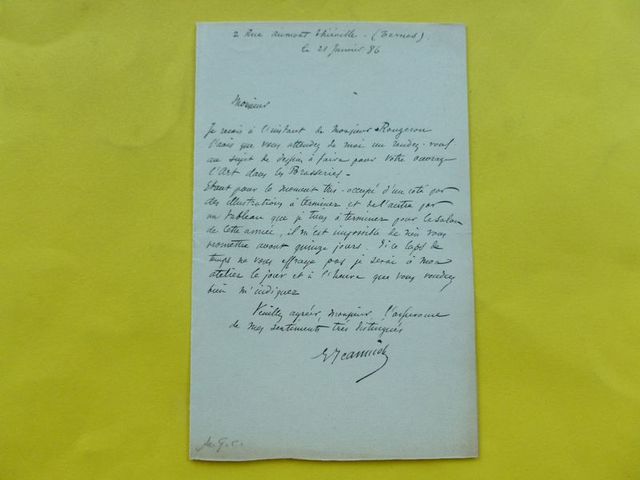 2 Rue aumont thiéville - (Ternes)
le 21 Janvier 86
Monsieur
Je reçois à l'instant de Monsieur Rougeron
l'avis que vous attendez de moi un rendez-vous
au sujet de dessins à faire pour votre ouvrage
l'Art dans les Brasseries -
Etant pour le moment très occupé d'un côté par
des illustrations à terminer et de l'autre par
un tableau que je tiens à terminer pour le salon
de cette année, il m'est impossible de rien vous
promettre avant quinze jours. Si ce laps de
temps ne vous effraye pas je serai à mon
atelier le jour et à l'heure que vous voudrez
bien m'indiquer
Veuillez agréer, monsieur, l'assurance
de mes sentiments très distingués
Jeanniot